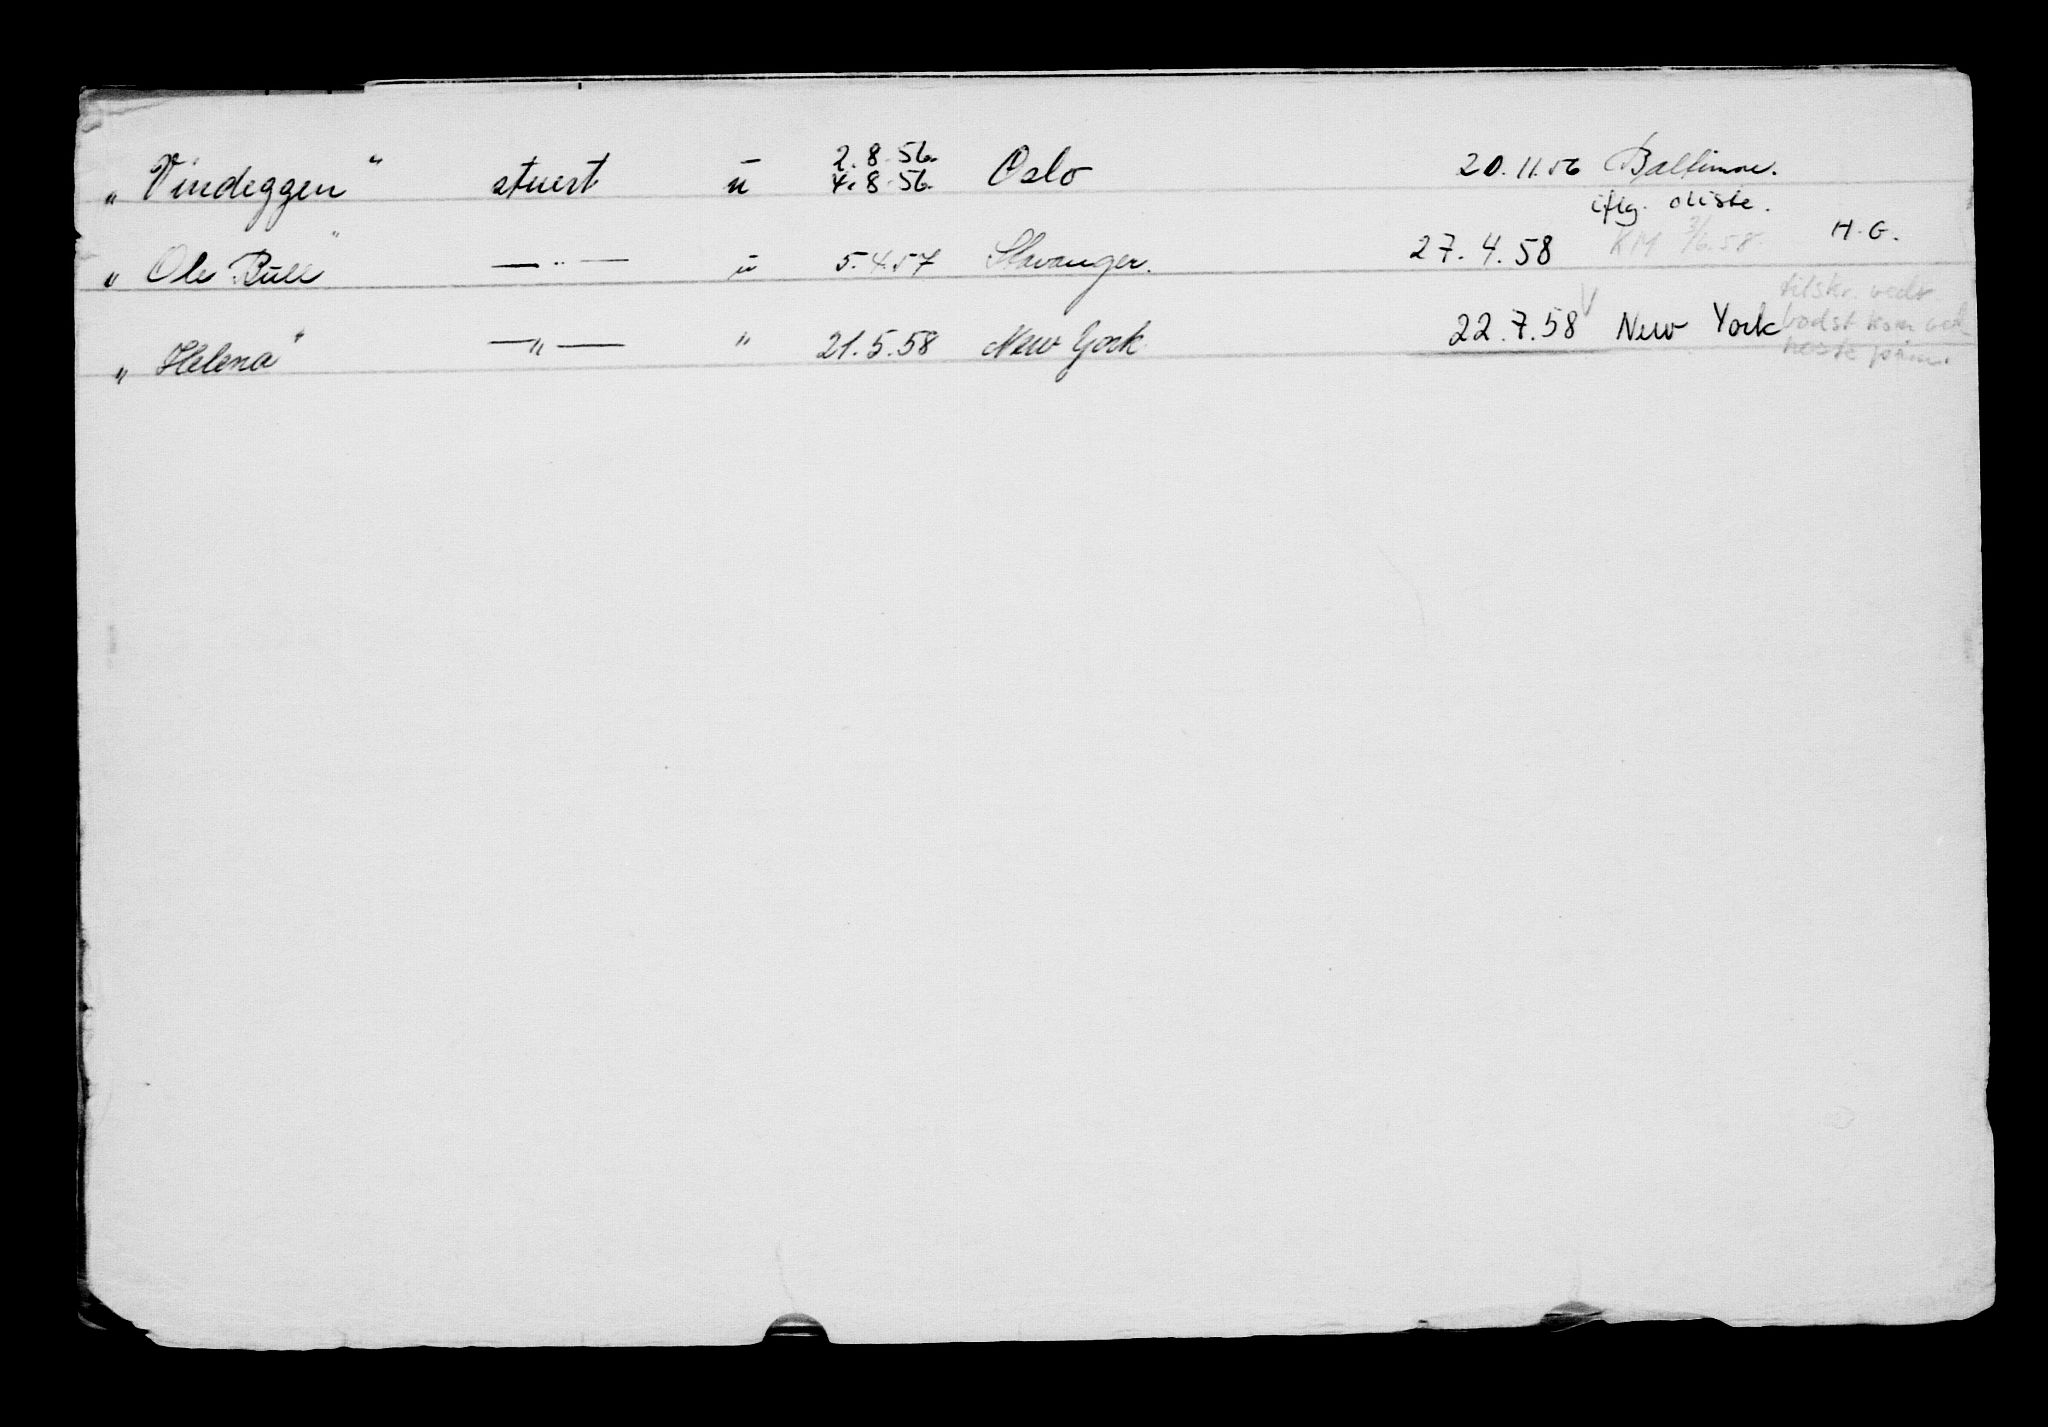 „ Vindeggen " stuert ü 2.8.56. 4.8.56. Oslo 20.11.56 Baltimore.
iflg. oliste.
„ Ole Bull " —"— ü 5.4.57 Stavanger. 27.4.58 KM 3/6.58. H.G.
„ Helena " —"— " 21.5.58 New York 22.7.58 V New York
tilskr. vedr.